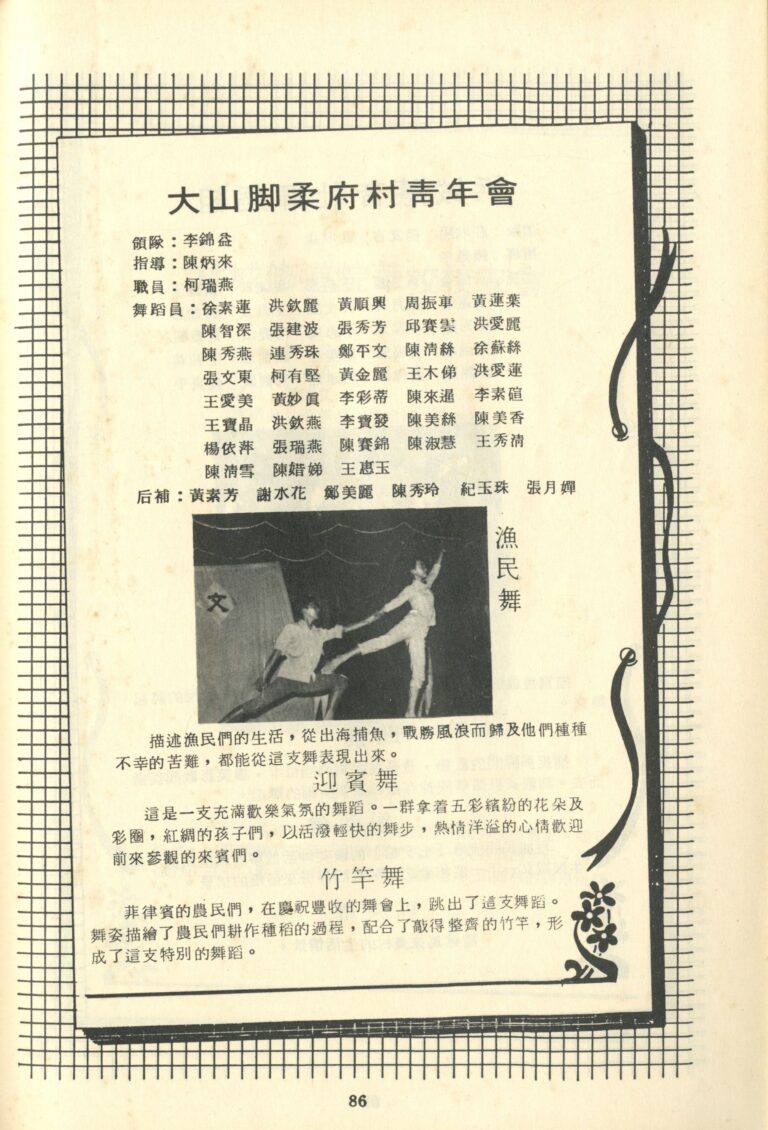 大山脚柔府村靑年會
領隊：李錦益
指導：陳炳來
職員：柯瑞燕
舞蹈員：徐素蓮 洪欽麗 黃順興 周振車 黃蓮葉
陳智深 張建波 張秀芳 邱賽雲 洪愛麗
陳秀燕 連秀珠 鄭平文 陳清絲 徐蘇絲
張文東 柯有堅 黃金麗 王木俤 洪愛蓮
王愛美 黃妙眞 李彩蒂 陳來暹 李素碹
王寶晶 洪欽燕 李寶發 陳美絲 陳美香
楊依萍 張瑞燕 陳賽錦 陳淑慧 王秀清
陳清雪 陳婚娣 王惠玉
后補：黃素芳 謝水花 鄭美麗 陳秀玲 紀玉珠 張月嬋
文
漁民舞
描述漁民們的生活，從出海捕魚，戰勝風浪而歸及他們種種
不幸的苦難，都能從這支舞表現出來。
迎賓舞
這是一支充滿歡樂氣氛的舞蹈。一群拿着五彩繽紛的花朵及
彩圈，紅綢的孩子們，以活潑輕快的舞步，熱情洋溢的心情歡迎
前來參觀的來賓們。
竹竿舞
菲律賓的農民們，在慶祝豐收的舞會上，跳出了這支舞蹈。
舞姿描繪了農民們耕作種稻的過程，配合了敲得整齊的竹竿，形
成了這支特別的舞蹈。
86